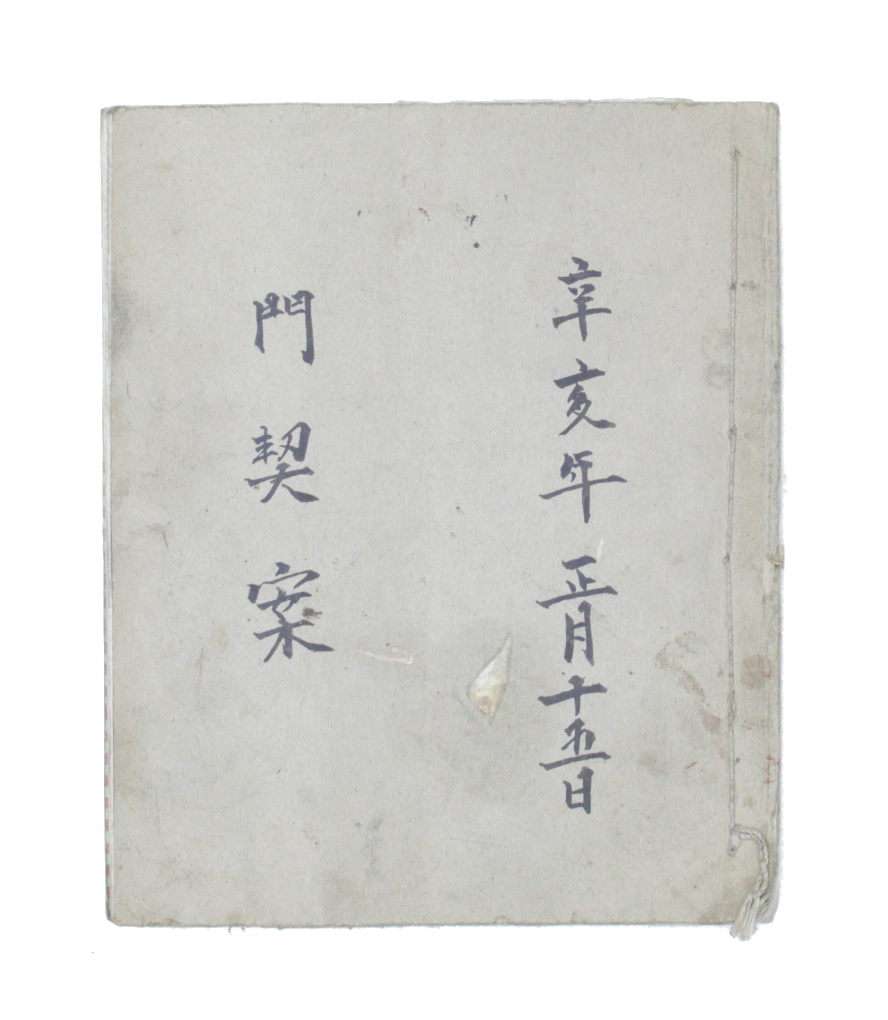 辛亥年正月十五日
門契案